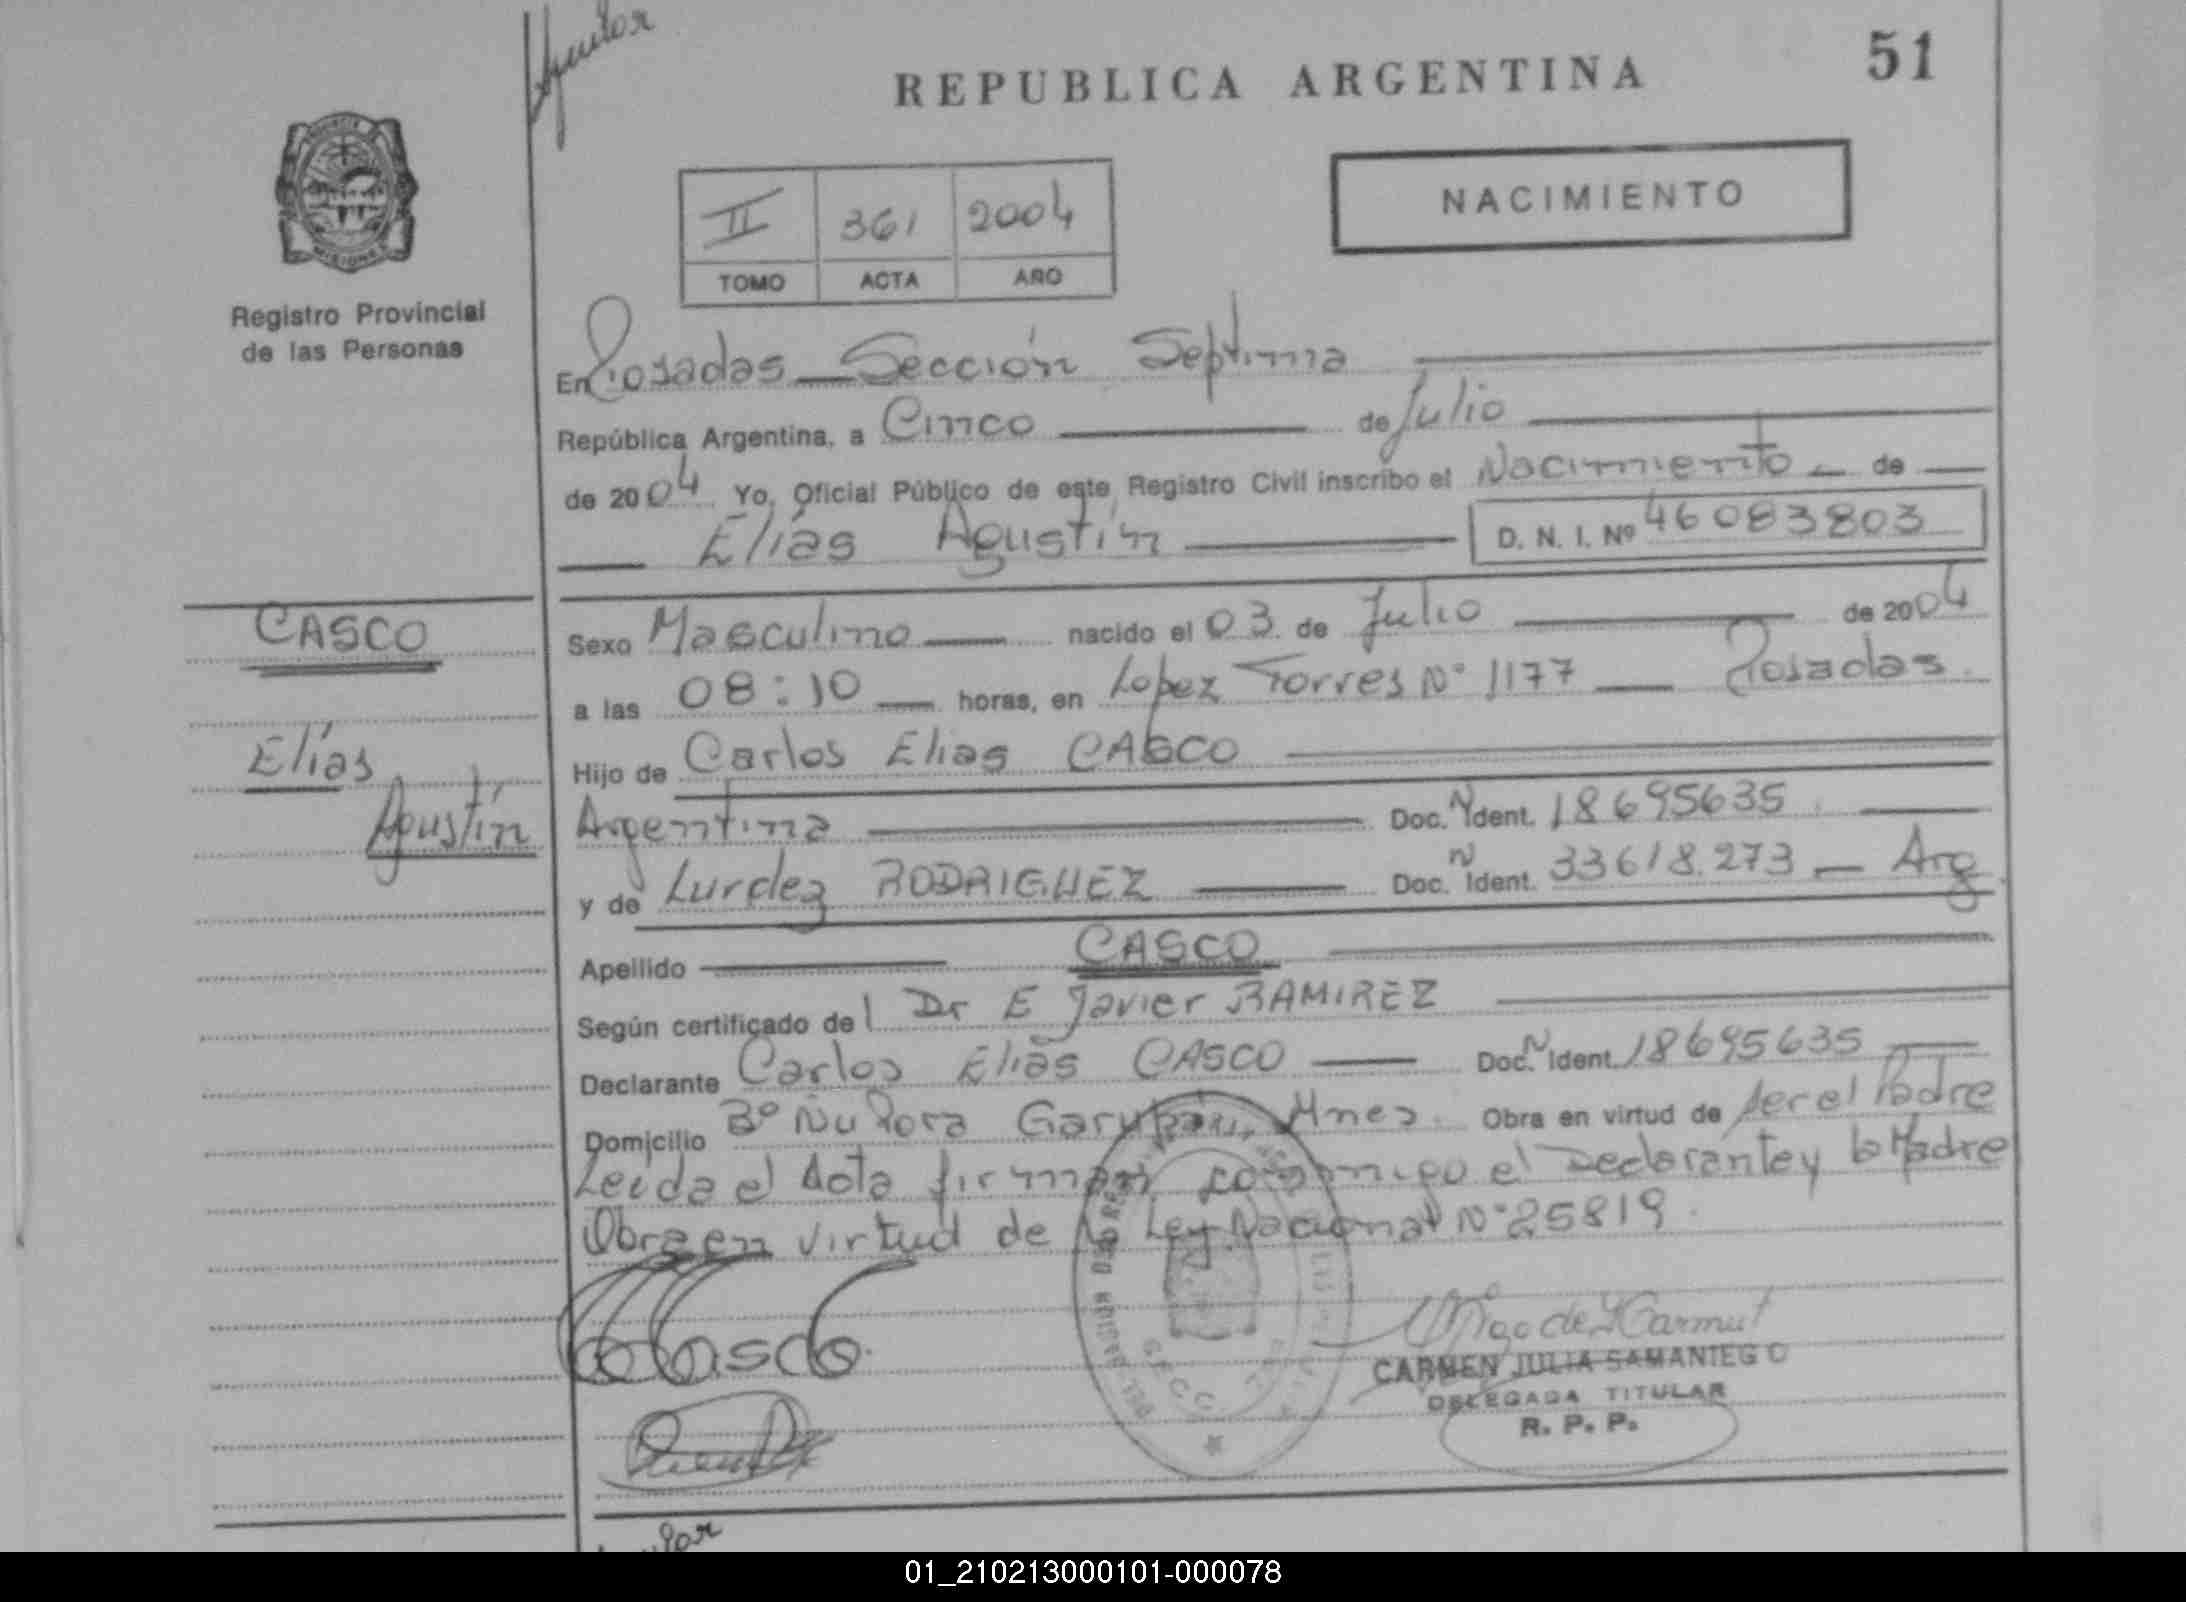 REPUBLICA ARGENTINA
51
PROVINCIA DE
MISIONES
Registro Provincial
de las Personas
II 361 2004
TOMO ACTA AÑO
NACIMIENTO
En Posadas Sección Septima
República Argentina, a Cinco de Julio
de 2004 Yo, Oficial Público de este Registro Civil inscribo el Nacimiento de
Elías Agustín D. N. I. Nº 46083803
CASCO
Elías
Agustín
Sexo Masculino nacido el 03 de Julio de 2004
a las 08:10 horas, en Lopez Torres Nº 1177 Posadas.
Hijo de Carlos Elias CASCO
Argentina Doc. N Ident. 18695635
y de Lurdez RODRIGUEZ Doc. N Ident. 33618.273 Arg
Apellido CASCO
Según certificado del Dr E Javier RAMIREZ
Declarante Carlos Elías CASCO Doc. N Ident. 18695635
Domicilio Bº Ñu Pora Garupá, Mnes. Obra en virtud de ser el Padre
Leida el Acta firman conmigo el Declarante y la Madre
Obra en virtud de la Ley Nacional Nº 25819.
Casco
CARMEN JULIA SAMANIEGO
DELEGADA TITULAR
R. P. P.
01_210213000101-000078